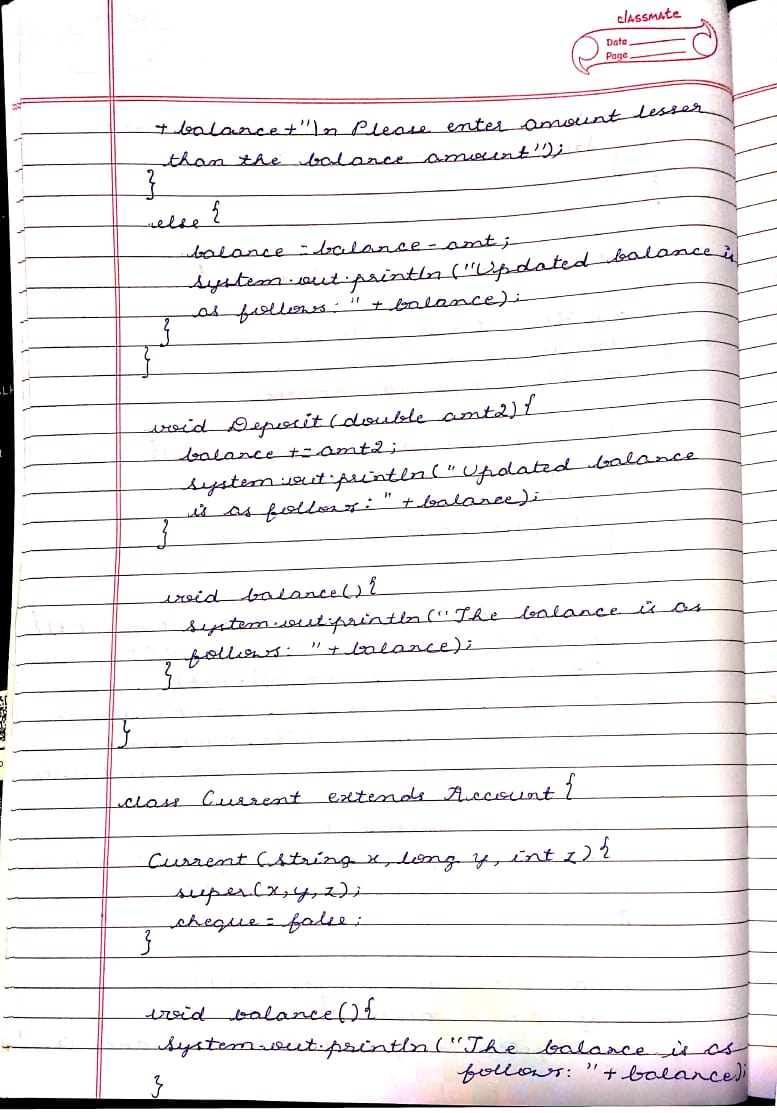 classmate
Date
Page
+ balance + "\n Please enter amount lesser
than the balance amount");
}
else {
balance = balance - amt;
System.out.println ("Updated balance is
as follows: " + balance);
}
}
void Deposit (double amt2) {
balance += amt2;
System.out.println (" Updated balance
is as follows: " + balance);
}
void balance() {
System.out.println ("The balance is as
follows: " + balance);
}
}
class Current extends Account {
Current (String x, long y, int z) {
super (x, y, z);
cheque = false;
}
void balance() {
System.out.println ("The balance is as
follows: " + balance);
}